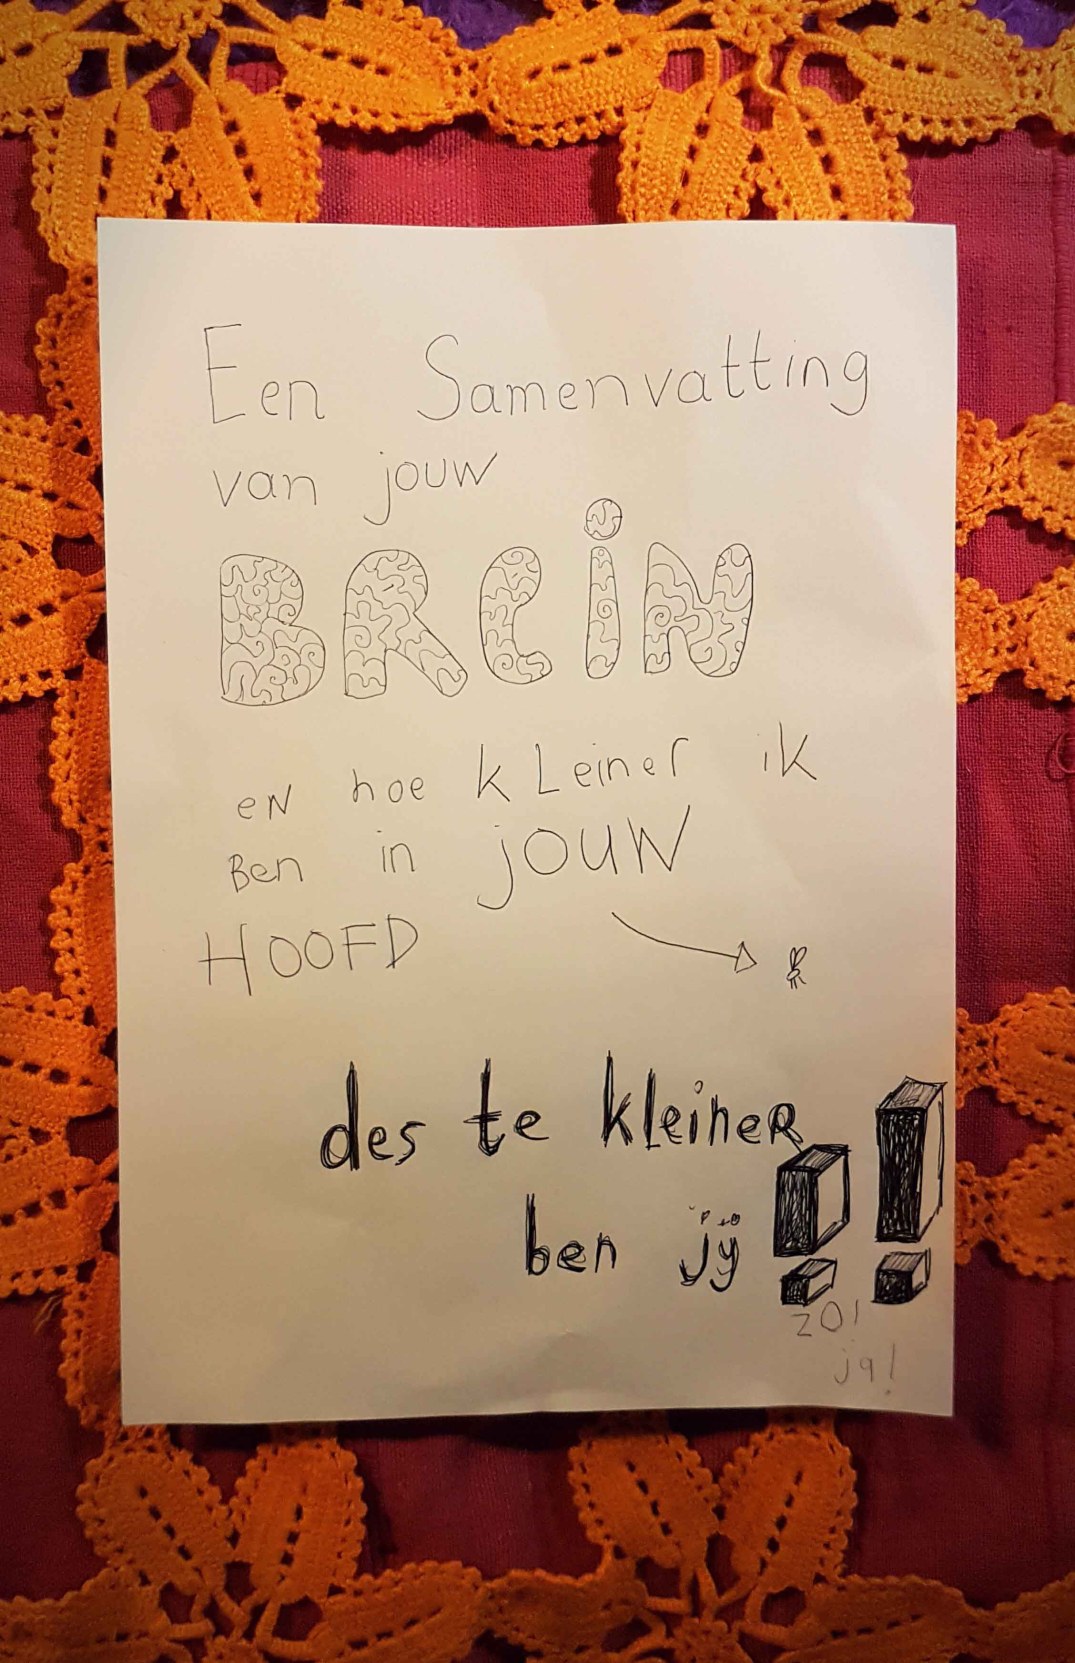 Een Samenvatting
van jouw
BREiN
eN hoe kLeiner ik
Ben in jouw
HOOFD
des te kleineR
ben jÿ !!
zo!
ja!